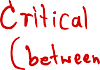 Critical
(between